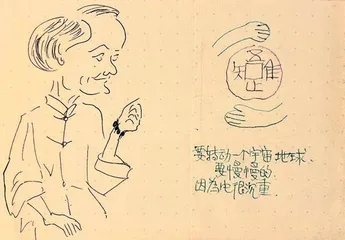 吾唯知足
要转动一个宇宙地球、
要慢慢的
因為它很沉重.